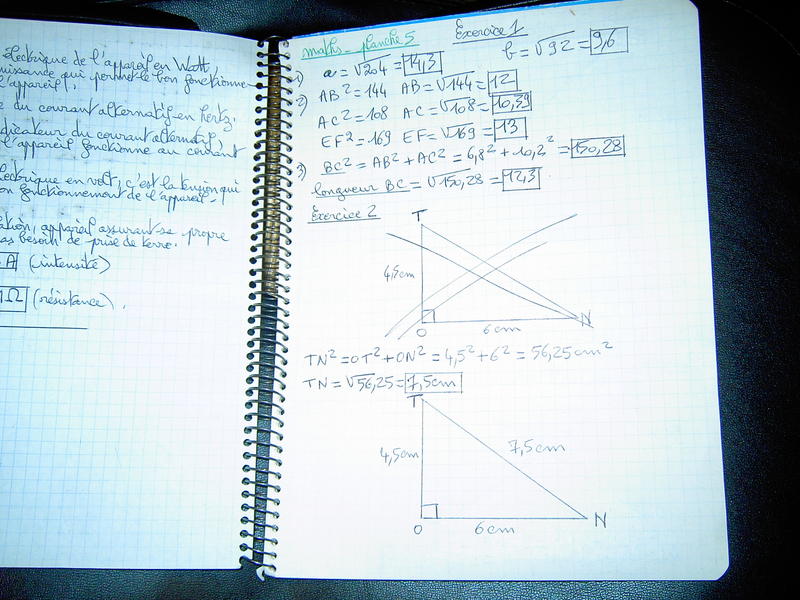 électrique de l'appareil en Watt,
puissance qui permet le bon fonctionne-
l'appareil.
du courant alternatif en hertz.
indicateur du courant alternatif,
l'appareil fonctionne au courant
électrique en volt, c'est la tension qui
bon fonctionnement de l'appareil.
appareil assurant sa propre
pas besoin de prise de terre.
A (intensité)
Ω (résistance).
maths - planche 5
Exercice 1
1) a = √204 = 14,3 b = √92 = 9,6
2) AB² = 144 AB = √144 = 12
AC² = 108 AC = √108 = 10,39
EF² = 169 EF = √169 = 13
3) BC² = AB² + AC² = 6,8² + 10,2² = 150,28
longueur BC = √150,28 = 12,3
Exercice 2
T
4,5cm
O
6cm
N
TN² = OT² + ON² = 4,5² + 6² = 56,25cm²
TN = √56,25 = 7,5cm
T
4,5cm
7,5cm
O
6cm
N